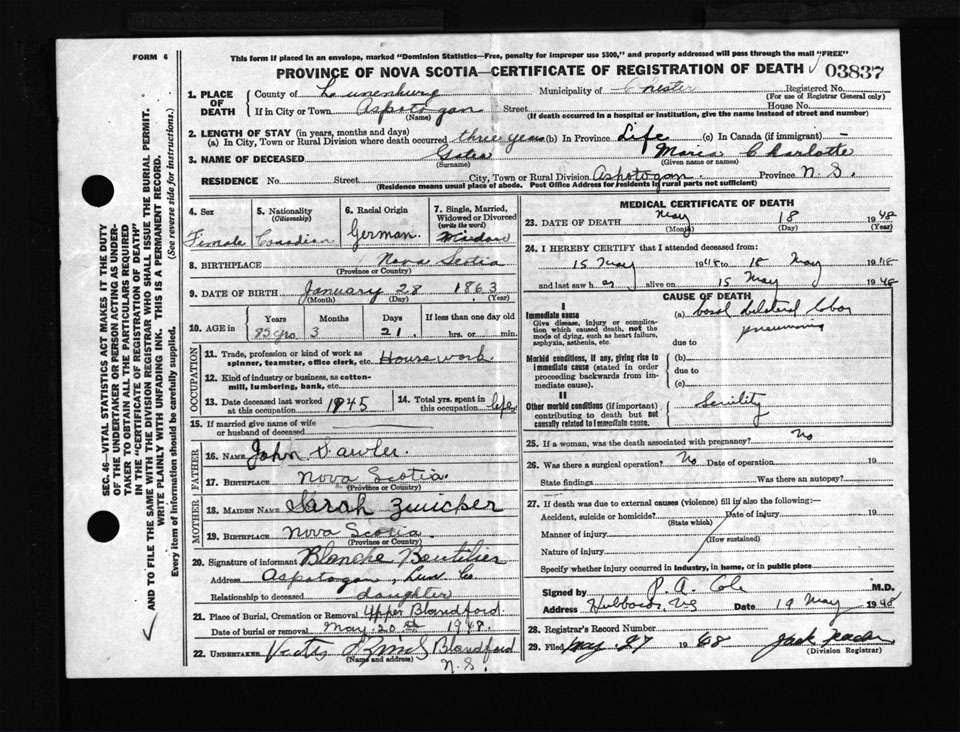 FORM 6
This form if placed in an envelope, marked "Dominion Statistics—Free, penalty for improper use $300," and properly addressed will pass through the mail "FREE"
PROVINCE OF NOVA SCOTIA—CERTIFICATE OF REGISTRATION OF DEATH 03837
1. PLACE OF DEATH County of Lunenburg Municipality of Chester Registered No.
(For use of Registrar General only)
If in City or Town Aspotogan Street House No.
(Name) (If death occurred in a hospital or institution, give the name instead of street and number)
2. LENGTH OF STAY (in years, months and days)
(a) In City, Town or Rural Division where death occurred three years (b) In Province Life (c) In Canada (if immigrant) —
3. NAME OF DECEASED Maria Charlotte
(Surname) (Given name or names)
RESIDENCE No. Street City, Town or Rural Division Aspotogan Province N. S.
(Residence means usual place of abode. Post Office Address for residents in rural parts not sufficient)
4. Sex 5. Nationality (Citizenship) 6. Racial Origin 7. Single, Married, Widowed or Divorced (write the word)
Female Canadian German Widow
8. BIRTHPLACE Nova Scotia
(Province or Country)
9. DATE OF BIRTH January 28 1863
(Month) (Day) (Year)
10. AGE in Years Months Days If less than one day old
85 yrs 3 21 hrs. or min.
OCCUPATION
11. Trade, profession or kind of work as spinner, teamster, office clerk, etc. House work
12. Kind of industry or business, as cotton-mill, lumbering, bank, etc.
13. Date deceased last worked at this occupation 1945 14. Total yrs. spent in this occupation life
15. If married give name of wife or husband of deceased
FATHER
16. NAME John Sawler
17. BIRTHPLACE Nova Scotia
(Province or Country)
MOTHER
18. MAIDEN NAME Sarah Zwicker
19. BIRTHPLACE Nova Scotia
(Province or Country)
20. Signature of informant Blanche Boutilier
Address Aspotogan, Lun. Co.
Relationship to deceased daughter
21. Place of Burial, Cremation or Removal Upper Blandford
Date of burial or removal May 20 1948.
22. UNDERTAKER Blandford
(Name and address) N. S.
MEDICAL CERTIFICATE OF DEATH
23. DATE OF DEATH May 18 1948
(Month) (Day) (Year)
24. I HEREBY CERTIFY that I attended deceased from:
15 May 1948 to 18 May 1948
and last saw her alive on 15 May 1948
CAUSE OF DEATH
I
Immediate cause
Give disease, injury or complication which caused death, not the mode of dying, such as heart failure, asphyxia, asthenia, etc.
(a) basal bilateral lobar pneumonia
due to
Morbid conditions, if any, giving rise to immediate cause (stated in order proceeding backwards from immediate cause).
(b)
due to
(c)
II
Other morbid conditions (if important) contributing to death but not causally related to immediate cause.
Senility
25. If a woman, was the death associated with pregnancy? No
26. Was there a surgical operation? No Date of operation 19
State findings Was there an autopsy?
27. If death was due to external causes (violence) fill in also the following:—
Accident, suicide or homicide? Date of injury 19
(State which)
Manner of injury
(How sustained)
Nature of injury
Specify whether injury occurred in industry, in home, or in public place
Signed by P. A. Cole M.D.
Address Hubbards, NS Date 19 May 1948
28. Registrar's Record Number
29. Filed May 27 1948
(Division Registrar)
SEC. 46—VITAL STATISTICS ACT MAKES IT THE DUTY
OF THE UNDERTAKER OR PERSON ACTING AS UNDER-
TAKER TO OBTAIN ALL THE PARTICULARS REQUIRED
IN THE "CERTIFICATE OF REGISTRATION OF DEATH"
AND TO FILE THE SAME WITH THE DIVISION REGISTRAR WHO SHALL ISSUE THE BURIAL PERMIT.
WRITE PLAINLY WITH UNFADING INK. THIS IS A PERMANENT RECORD.
Every item of Information should be carefully supplied. (See reverse side for instructions.)